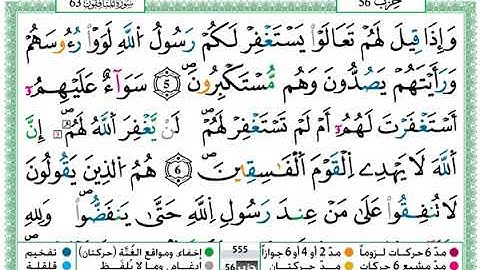 سورة المنافقون 63 حزب 56
وَإِذَا قِيلَ لَهُمْ تَعَالَوْا۟ يَسْتَغْفِرْ لَكُمْ رَسُولُ ٱللَّهِ لَوَّوْا۟ رُءُوسَهُمْ
وَرَأَيْتَهُمْ يَصُدُّونَ وَهُم مُّسْتَكْبِرُونَ ۝5 سَوَآءٌ عَلَيْهِمُۥٓ
أَسْتَغْفَرْتَ لَهُمُۥٓ أَمْ لَمْ تَسْتَغْفِرْ لَهُمْ لَنْ يَّغْفِرَ ٱللَّهُ لَهُمُۥٓ إِنَّ
ٱللَّهَ لَا يَهْدِے ٱلْقَوْمَ ٱلْفَـٰسِقِينَ ۝6 هُمُ ٱلَّذِينَ يَقُولُونَ
لَا تُنفِقُوا۟ عَلَىٰ مَنْ عِندَ رَسُولِ ٱللَّهِ حَتَّىٰ يَنفَضُّوا۟ وَلِلهِ
مدّ 6 حركات لزوماً مدّ 2 أو 4 أو 6 جوازاً 555 إخفاء، ومواقع الغُنَّة (حركتان) تفخيم
مدّ مشبع 6 حركات مدّ حركتان 56 إدغام، وما لا يُلفَظ قلقلة